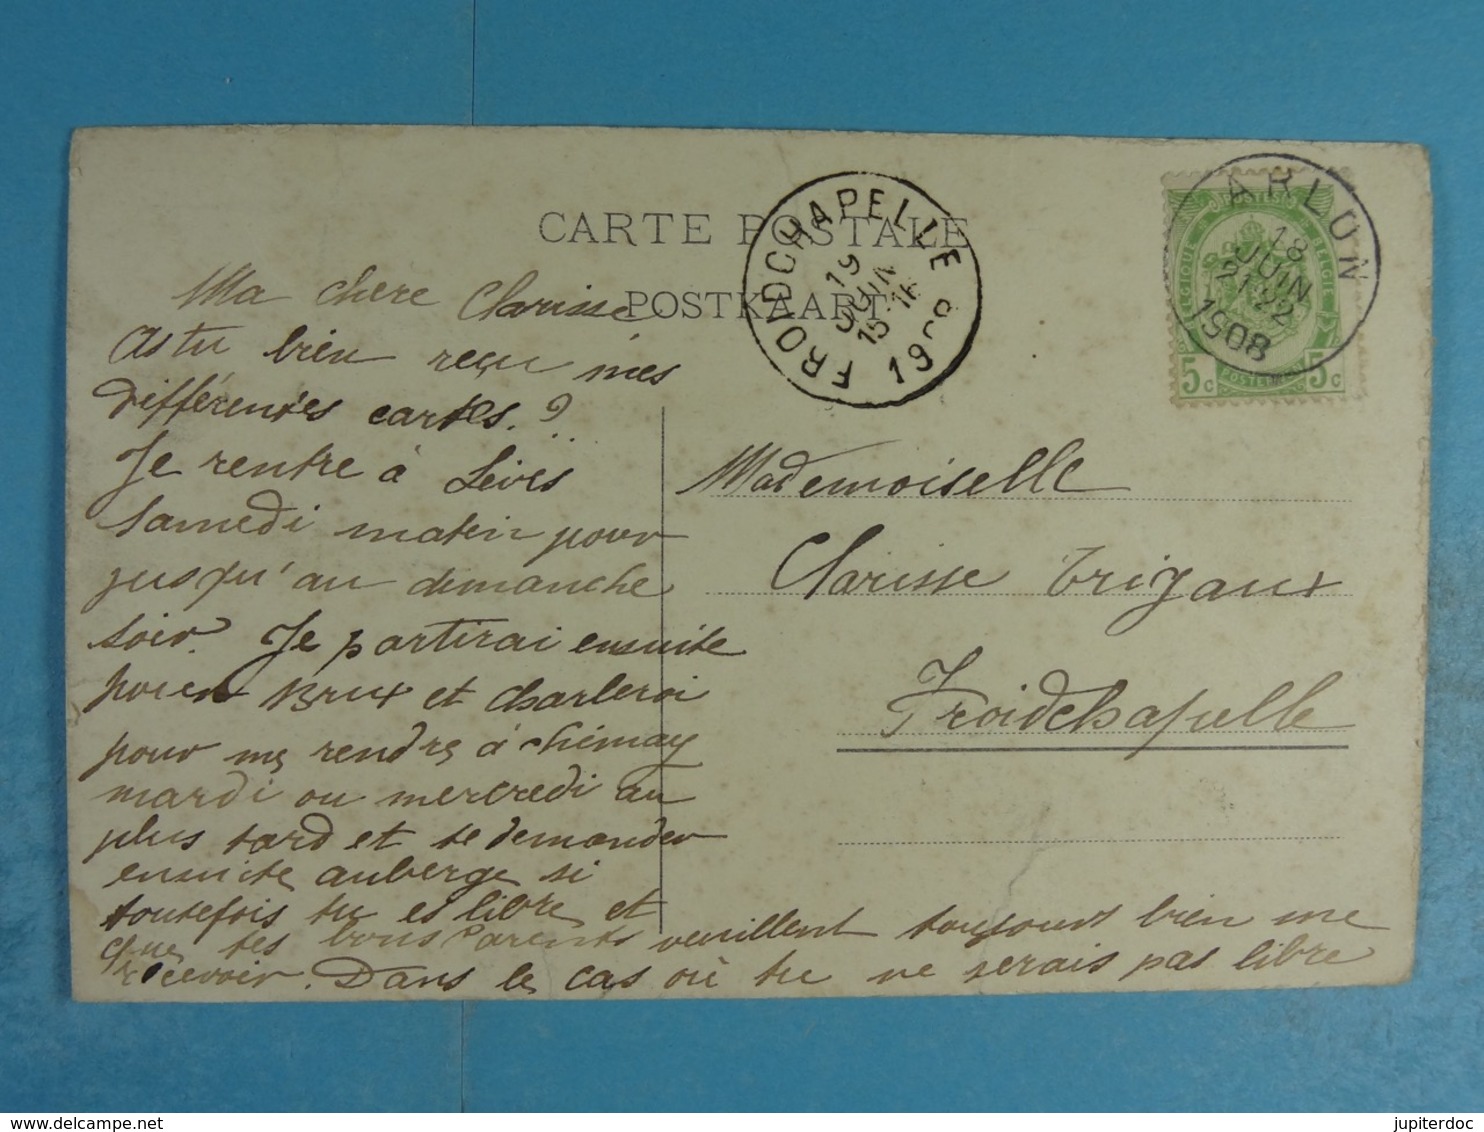 CARTE POSTALE
POSTKAART
FROIDCHAPELLE
19
JUIN
15-16
1908
ARLON
18
JUIN
21-22
1908
POSTES
BELGIQUE
BELGIE
5c
POSTERIJEN
5c
Ma chere Clarisse
As tu bien reçu mes
différentes cartes.?
Je rentre à
samedi matin pour
jusqu'au dimanche
soir. Je partirai ensuite
pour Brux et Charleroi
pour me rendre à Chimay
mardi ou mercredi au
plus tard et te demander
ensuite auberge si
toutefois tu es libre et
que tes bons Parents veuillent toujours bien me
recevoir. Dans le cas où tu ne serais pas libre
Mademoiselle
Clarisse Trigaux
Froidchapelle
delcampe.net
jupiterdoc